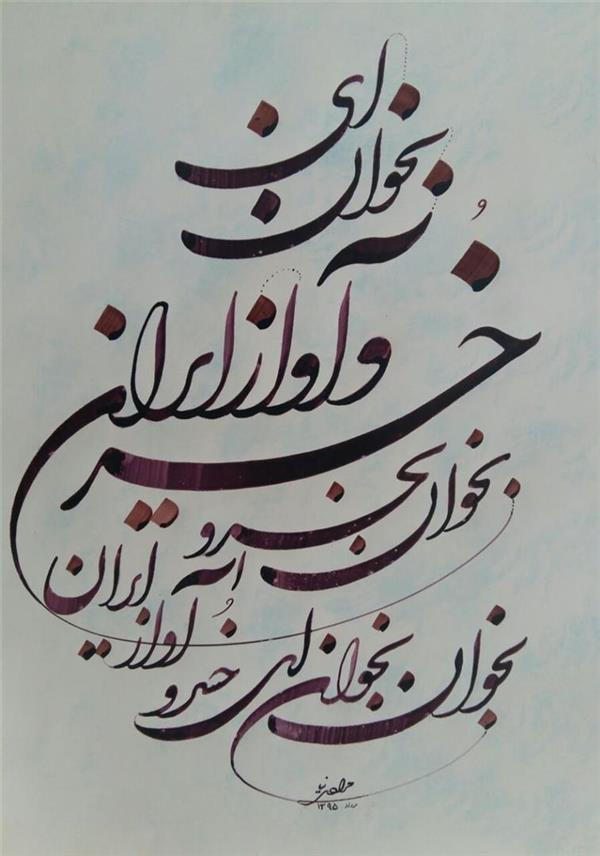 بخوان ای
خسرو آواز ایران
بخوان خسرو
آواز ایران
بخوان بخوان ای خسرو
۱۳۹۵